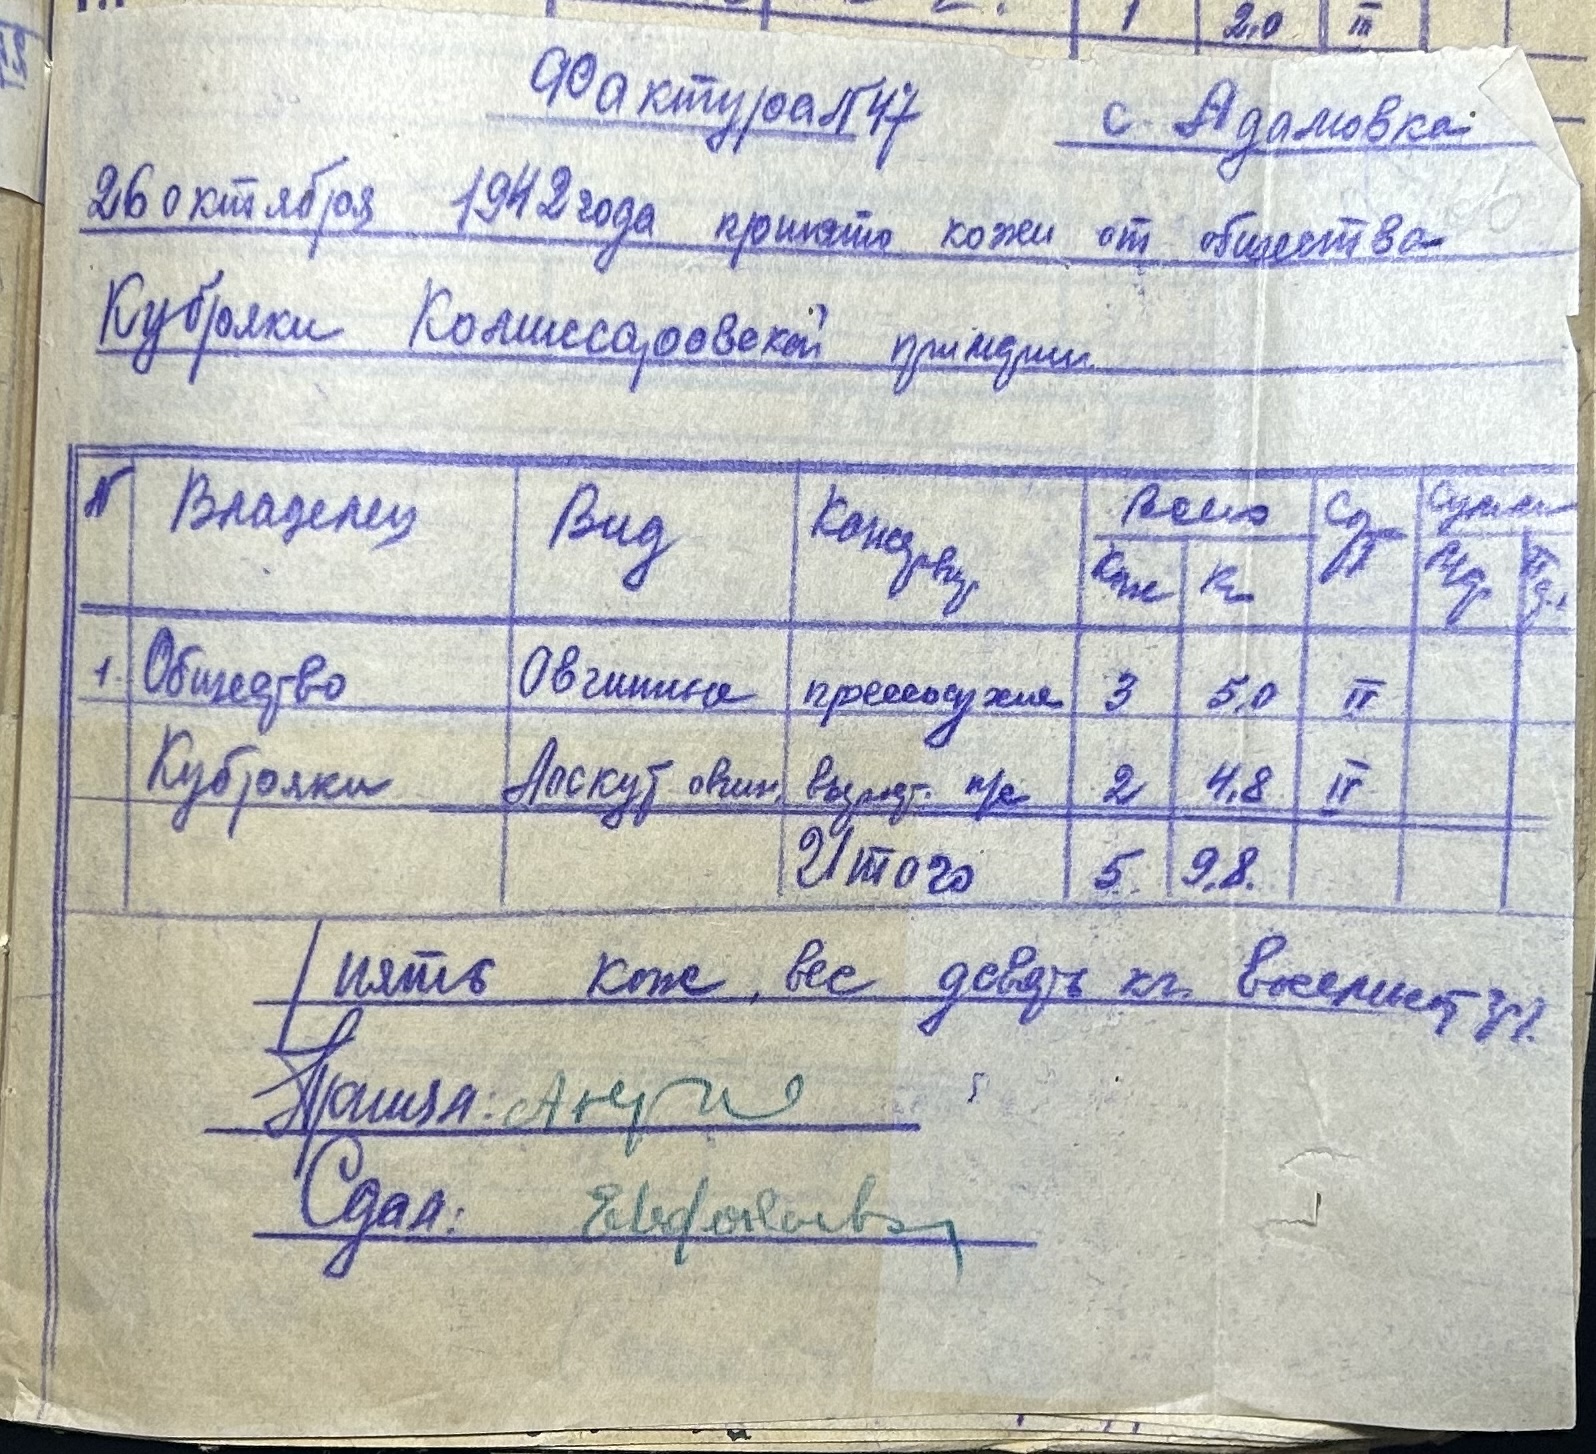 1 2,0 III
Фактура № 47 с. Адамовка
26 октября 1942 года принято кожи от общества
Кубряки Комиссаровской примэрии
№ Владелец Вид Консерви Всего Сорт Сумма
Кож Кг
1. Общество Овчина пресносухая 3 5,0 II
Кубряки Лоскут овчин. п/с 2 4,8 II
Итого 5 9,8.
пять кож, вес девять кг. восемьсот гр.
Принял:
Сдал: